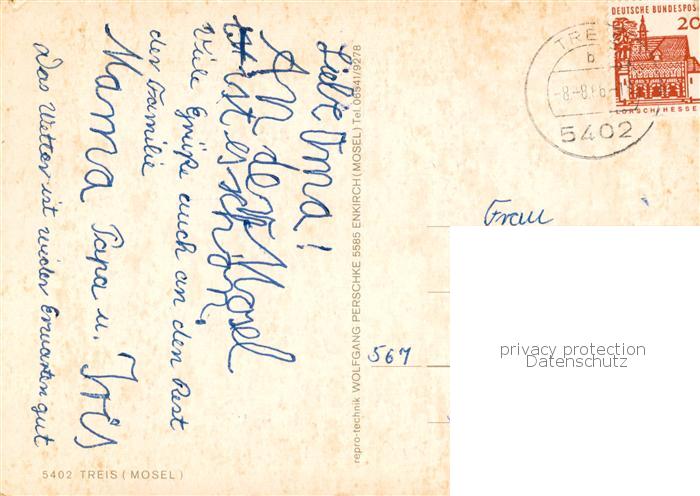 Liebe Oma!
An der Mosel
ist es schön.
Viele Grüße auch an den Rest
der Familie
Mama Papa u. Iris
Das Wetter ist wider Erwarten gut
5402 TREIS (MOSEL)
repro-technik WOLFGANG PERSCHKE 5585 ENKIRCH (MOSEL) Tel. 06541/9278
DEUTSCHE BUNDESPOST
20
LORSCH/HESSEN
TREIS
b
-8.-8.66-
5402
Frau
567
privacy protection
Datenschutz